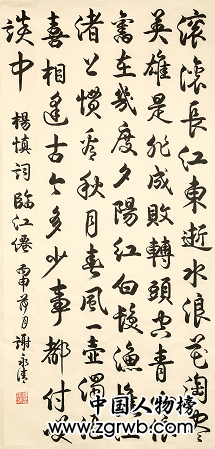 滚滚長江東逝水浪花淘尽
英雄是非成敗轉頭空青山依
舊在幾度夕陽紅白髮漁樵江
渚上慣看秋月春風一壺濁酒
喜相逢古今多少事都付笑
談中
楊慎詞臨江僊
丙申荷月謝永清
中国人物榜
www.zgrwb.com